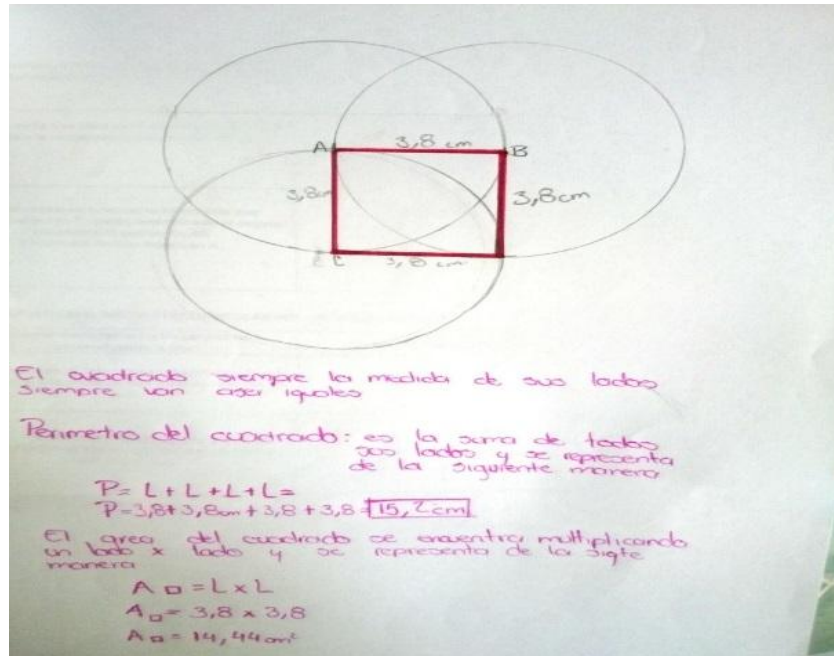 A 3,8 cm B
3,8cm 3,8cm
C 3,8 cm
El cuadrado siempre la medida de sus lados
siempre van aser iguales
Perimetro del cuadrado: es la suma de todos
sus lados y se representa
de la siguiente manera
P= L + L + L + L =
P=3,8+3,8cm + 3,8 + 3,8 = 15,2 cm
El area del cuadrado se encuentra multiplicando
un lado x lado y se representa de la sigte
manera
A □ = L x L
A □ = 3,8 x 3,8
A □ = 14,44 cm²